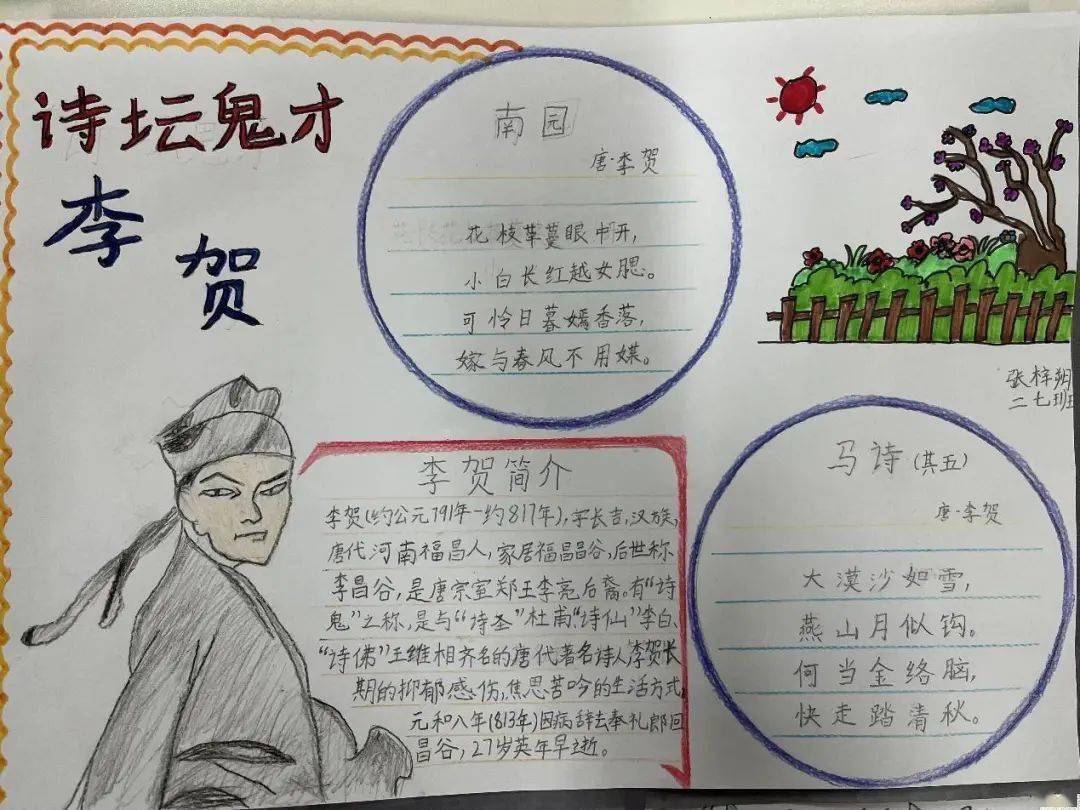 诗坛鬼才
李贺
南园
唐·李贺
花枝草蔓眼中开，
小白长红越女腮。
可怜日暮嫣香落，
嫁与春风不用媒。
张梓朔
二七班
李贺简介
李贺(约公元791年-约817年)，字长吉，汉族，
唐代河南福昌人，家居福昌昌谷，后世称
李昌谷，是唐宗室郑王李亮后裔。有“诗
鬼”之称，是与“诗圣”杜甫“诗仙”李白、
“诗佛”王维相齐名的唐代著名诗人，李贺长
期的抑郁感伤，焦思苦吟的生活方式，
元和八年(813年)因病辞去奉礼郎回
昌谷，27岁英年早逝。
马诗(其五)
唐·李贺
大漠沙如雪，
燕山月似钩。
何当金络脑，
快走踏清秋。